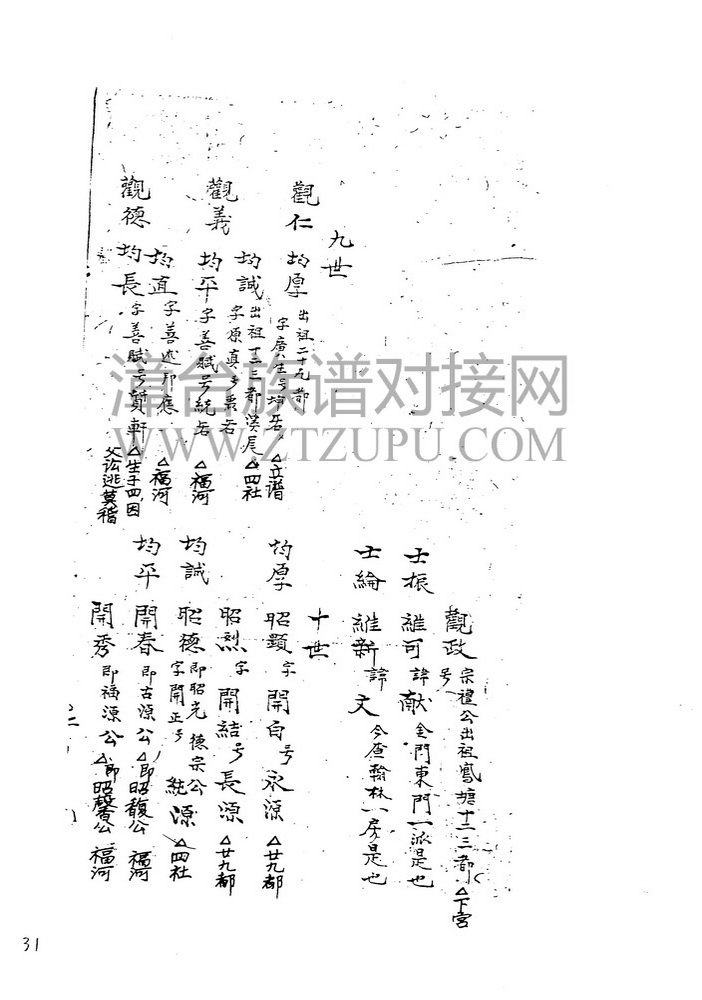 觀政 号宗禮公出祖 塘十二三都 △下宮
士振 維可 諱献 金門東門一派是也
士綸 維新 諱文 今查翰林一房是也
九世
觀仁 均厚 出祖二十九都 字廣生号 △立谱
均誠 出祖十二三都溪尾 字原真号 △四社
觀義 均平 字善賦号 △福河
均直 字善述 △福河
觀德 均長 字善賦号質軒 △生子四,因父讼逃莫稽
十世
均厚 昭顯 字開自号永源 △廿九都
昭烈 字開結号長源 △廿九都
均誠 昭德 即昭光德宗公 字開正号統源 △四社
均平 開春 即古源公 △即昭馥公 福河
開秀 即福源公 △即昭馨公 福河
31
漳台族谱对接网
WWW.ZTZUPU.COM